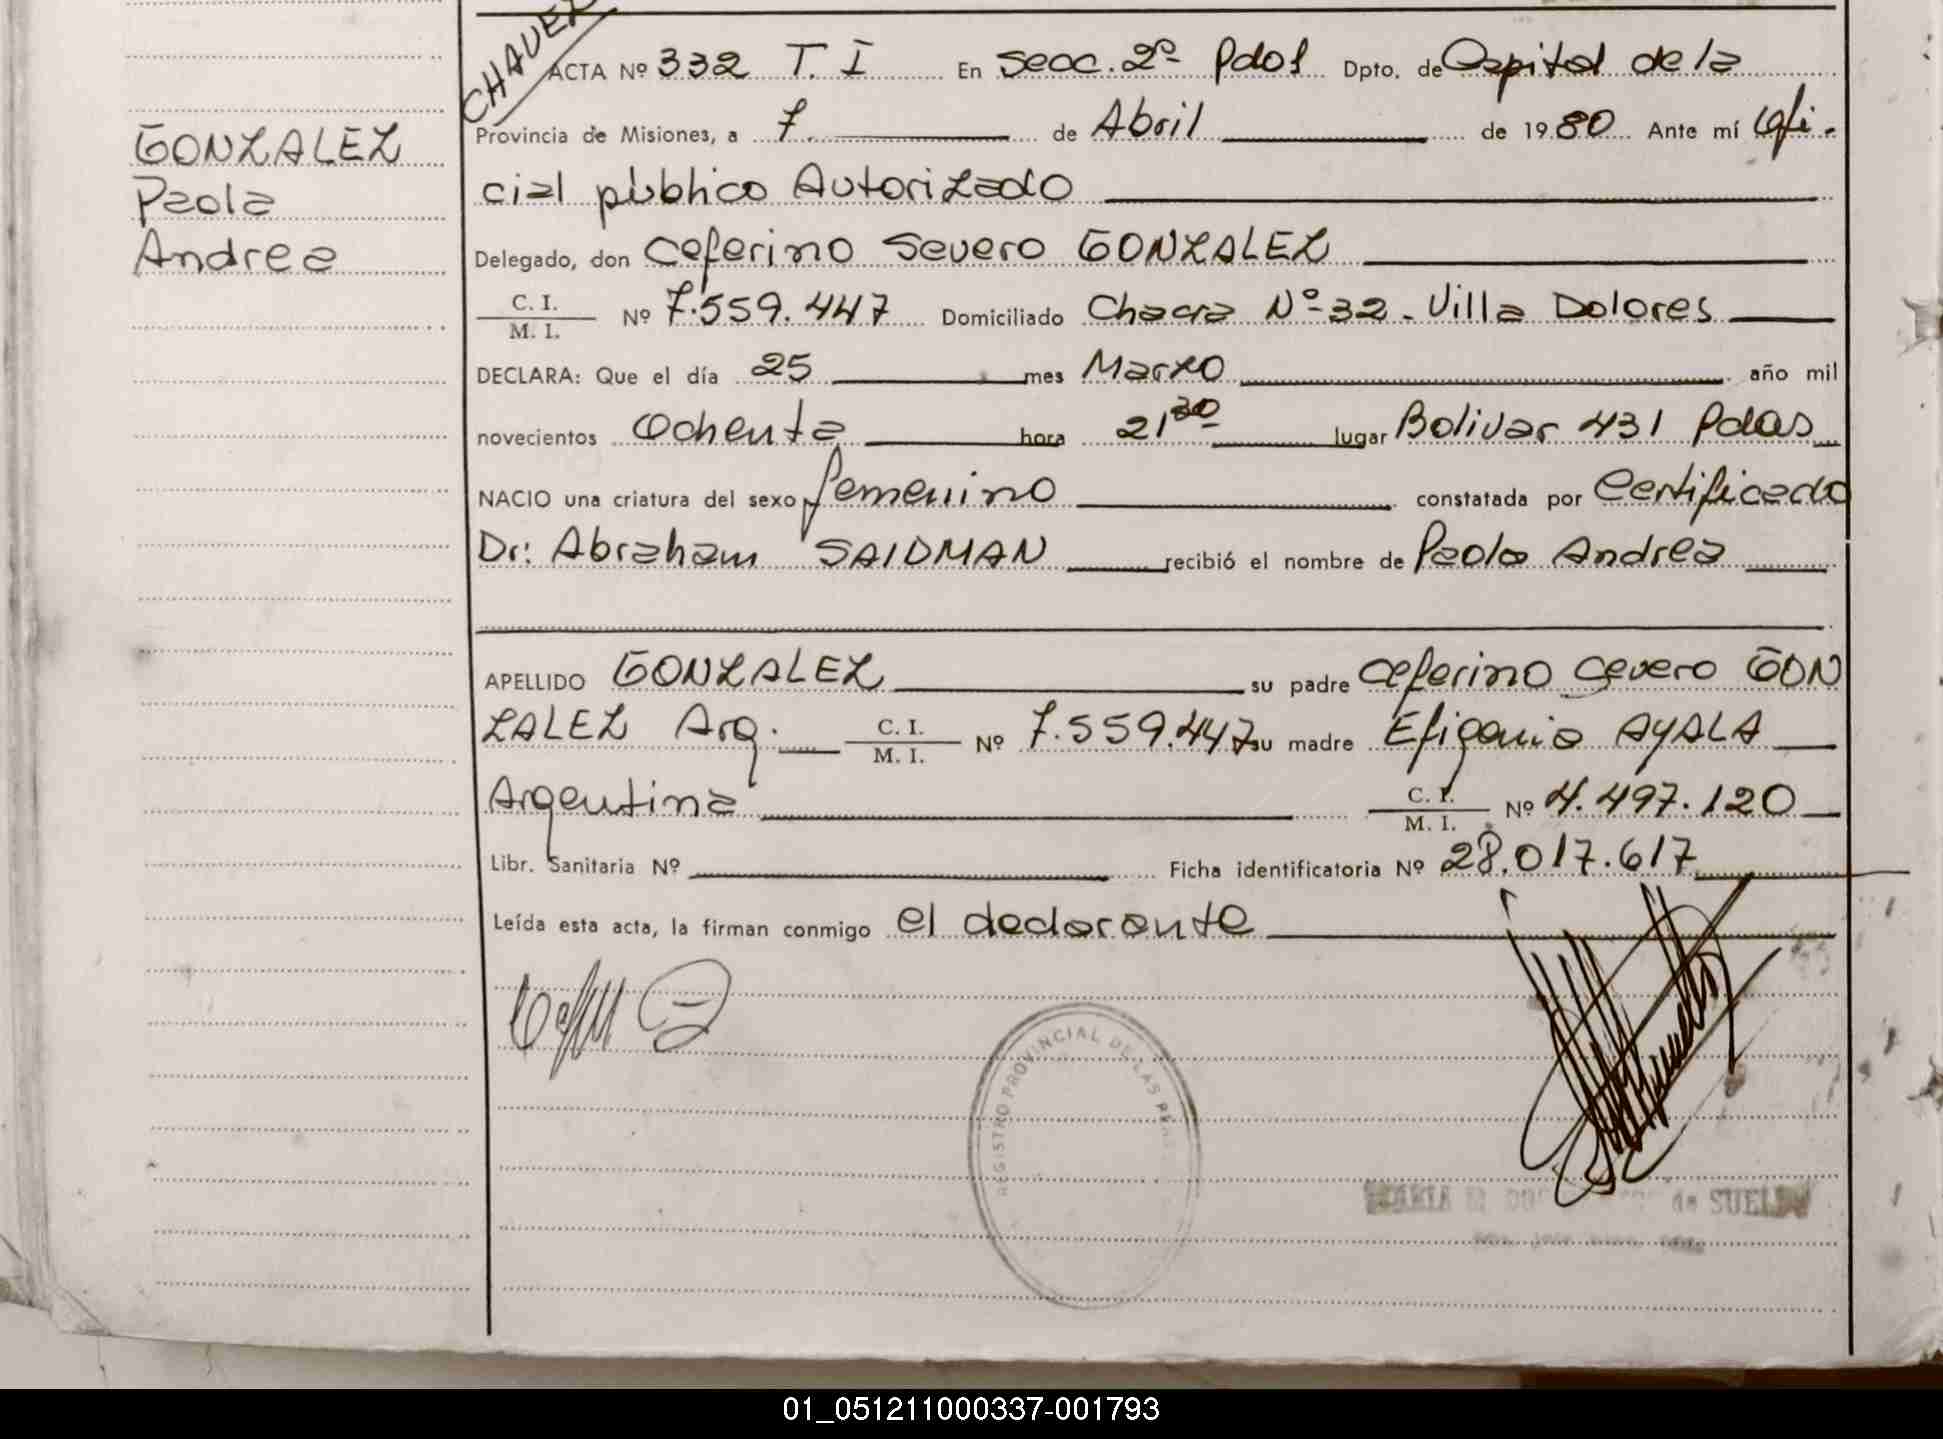 CHAVEZ
ACTA Nº 332 T. I En Secc. 2ª Pdas Dpto. de Capital de la
Provincia de Misiones, a 7 de Abril de 1980 Ante mí Ofi-
GONZALEZ
cial público Autorizado
Paola
Andrea
Delegado, don Ceferino Severo GONZALEZ
C. I.
M. I. Nº 7.559.447 Domiciliado Chacra Nº 32 - Villa Dolores
DECLARA: Que el día 25 mes Marzo año mil
novecientos Ochenta hora 21 30 lugar Bolivar 431 Pdas
NACIO una criatura del sexo femenino constatada por Certificado
Dr: Abraham SAIDMAN recibió el nombre de Paola Andrea
APELLIDO GONZALEZ su padre Ceferino Cevero GON
ZALEZ Arg. C. I. M. I. Nº 7.559.447 su madre Efigenia AYALA
Argentina C. I. M. I. Nº 4.497.120
Libr. Sanitaria Nº Ficha identificatoria Nº 28.017.617
Leída esta acta, la firman conmigo el declarante
REGISTRO PROVINCIAL DE LAS
de SUELDO
01_051211000337-001793